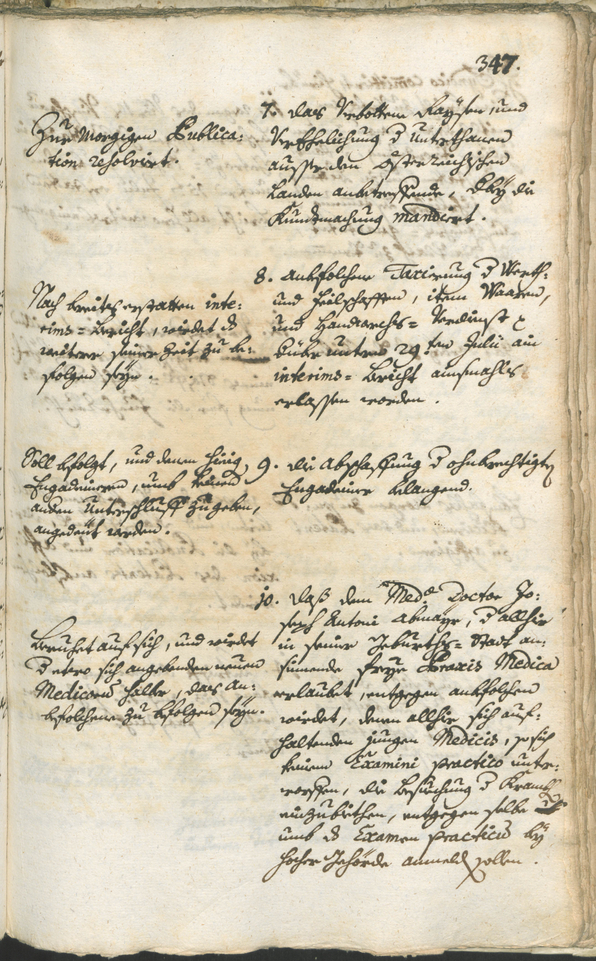 347.
Zur Morgigen Publica:
tion resolvirt.
7. das Verbottene Raÿsen, und
Verehelichung d Unterthanen
ausser den Österreichischen
Landen anbetreffende, beÿ die
Kundtmachung mandiert.
Nach bereits erstatten inte:
rims=Bericht, wirdet ds
weitere seiner Zeit zu be:
folgen seÿn.
8. anbefolchene Taxierung d Werth:
und Feilschafften, item Waaren,
und Handwerchs=Verdienst
hiehr unterm 29.ten Julii ein
interims=Bericht
erlassen worden.
Soll befolgt, und denen hiesig
Engadeinern, umb
anden Unterschluff zu geben,
angedeut werden.
9. die Abschaffung d ohnberechtigten
Engadeiner belangend.
Beruhet auf sich, und wirdet
d etwo sich angebenden neuen
Medicorum halber, das an:
befolchene zu befolgen seÿn.
10. daß dem Med: Doctor Jo:
seph Antoni Abmaÿr, d allhier
in seiner Geburths=Stadt an:
sinnende freÿe Praxis Medica
erlaubet, entgegen anbefolchen
wirdet, denen allhier sich auf:
haltenden jungen Medicis, so sich
keinem Examini practico unter:
worffen, die Besuchung d Krankh
einzubiethen, entgegen selbe
umb ds Examen practicum beÿ
hocher Behörde anmeld sollen.